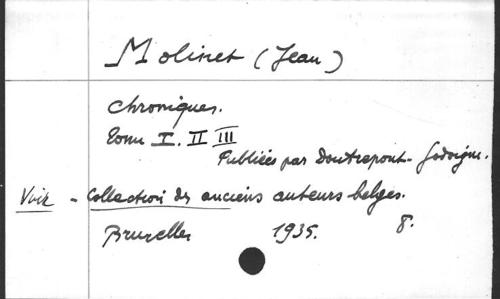 Molinet (Jean)
Chroniques.
Tome I. II III
Publiées par Doutrepont - Jodogne.
Voir - Collection des anciens auteurs belges.
Bruxelles 1935. 8.